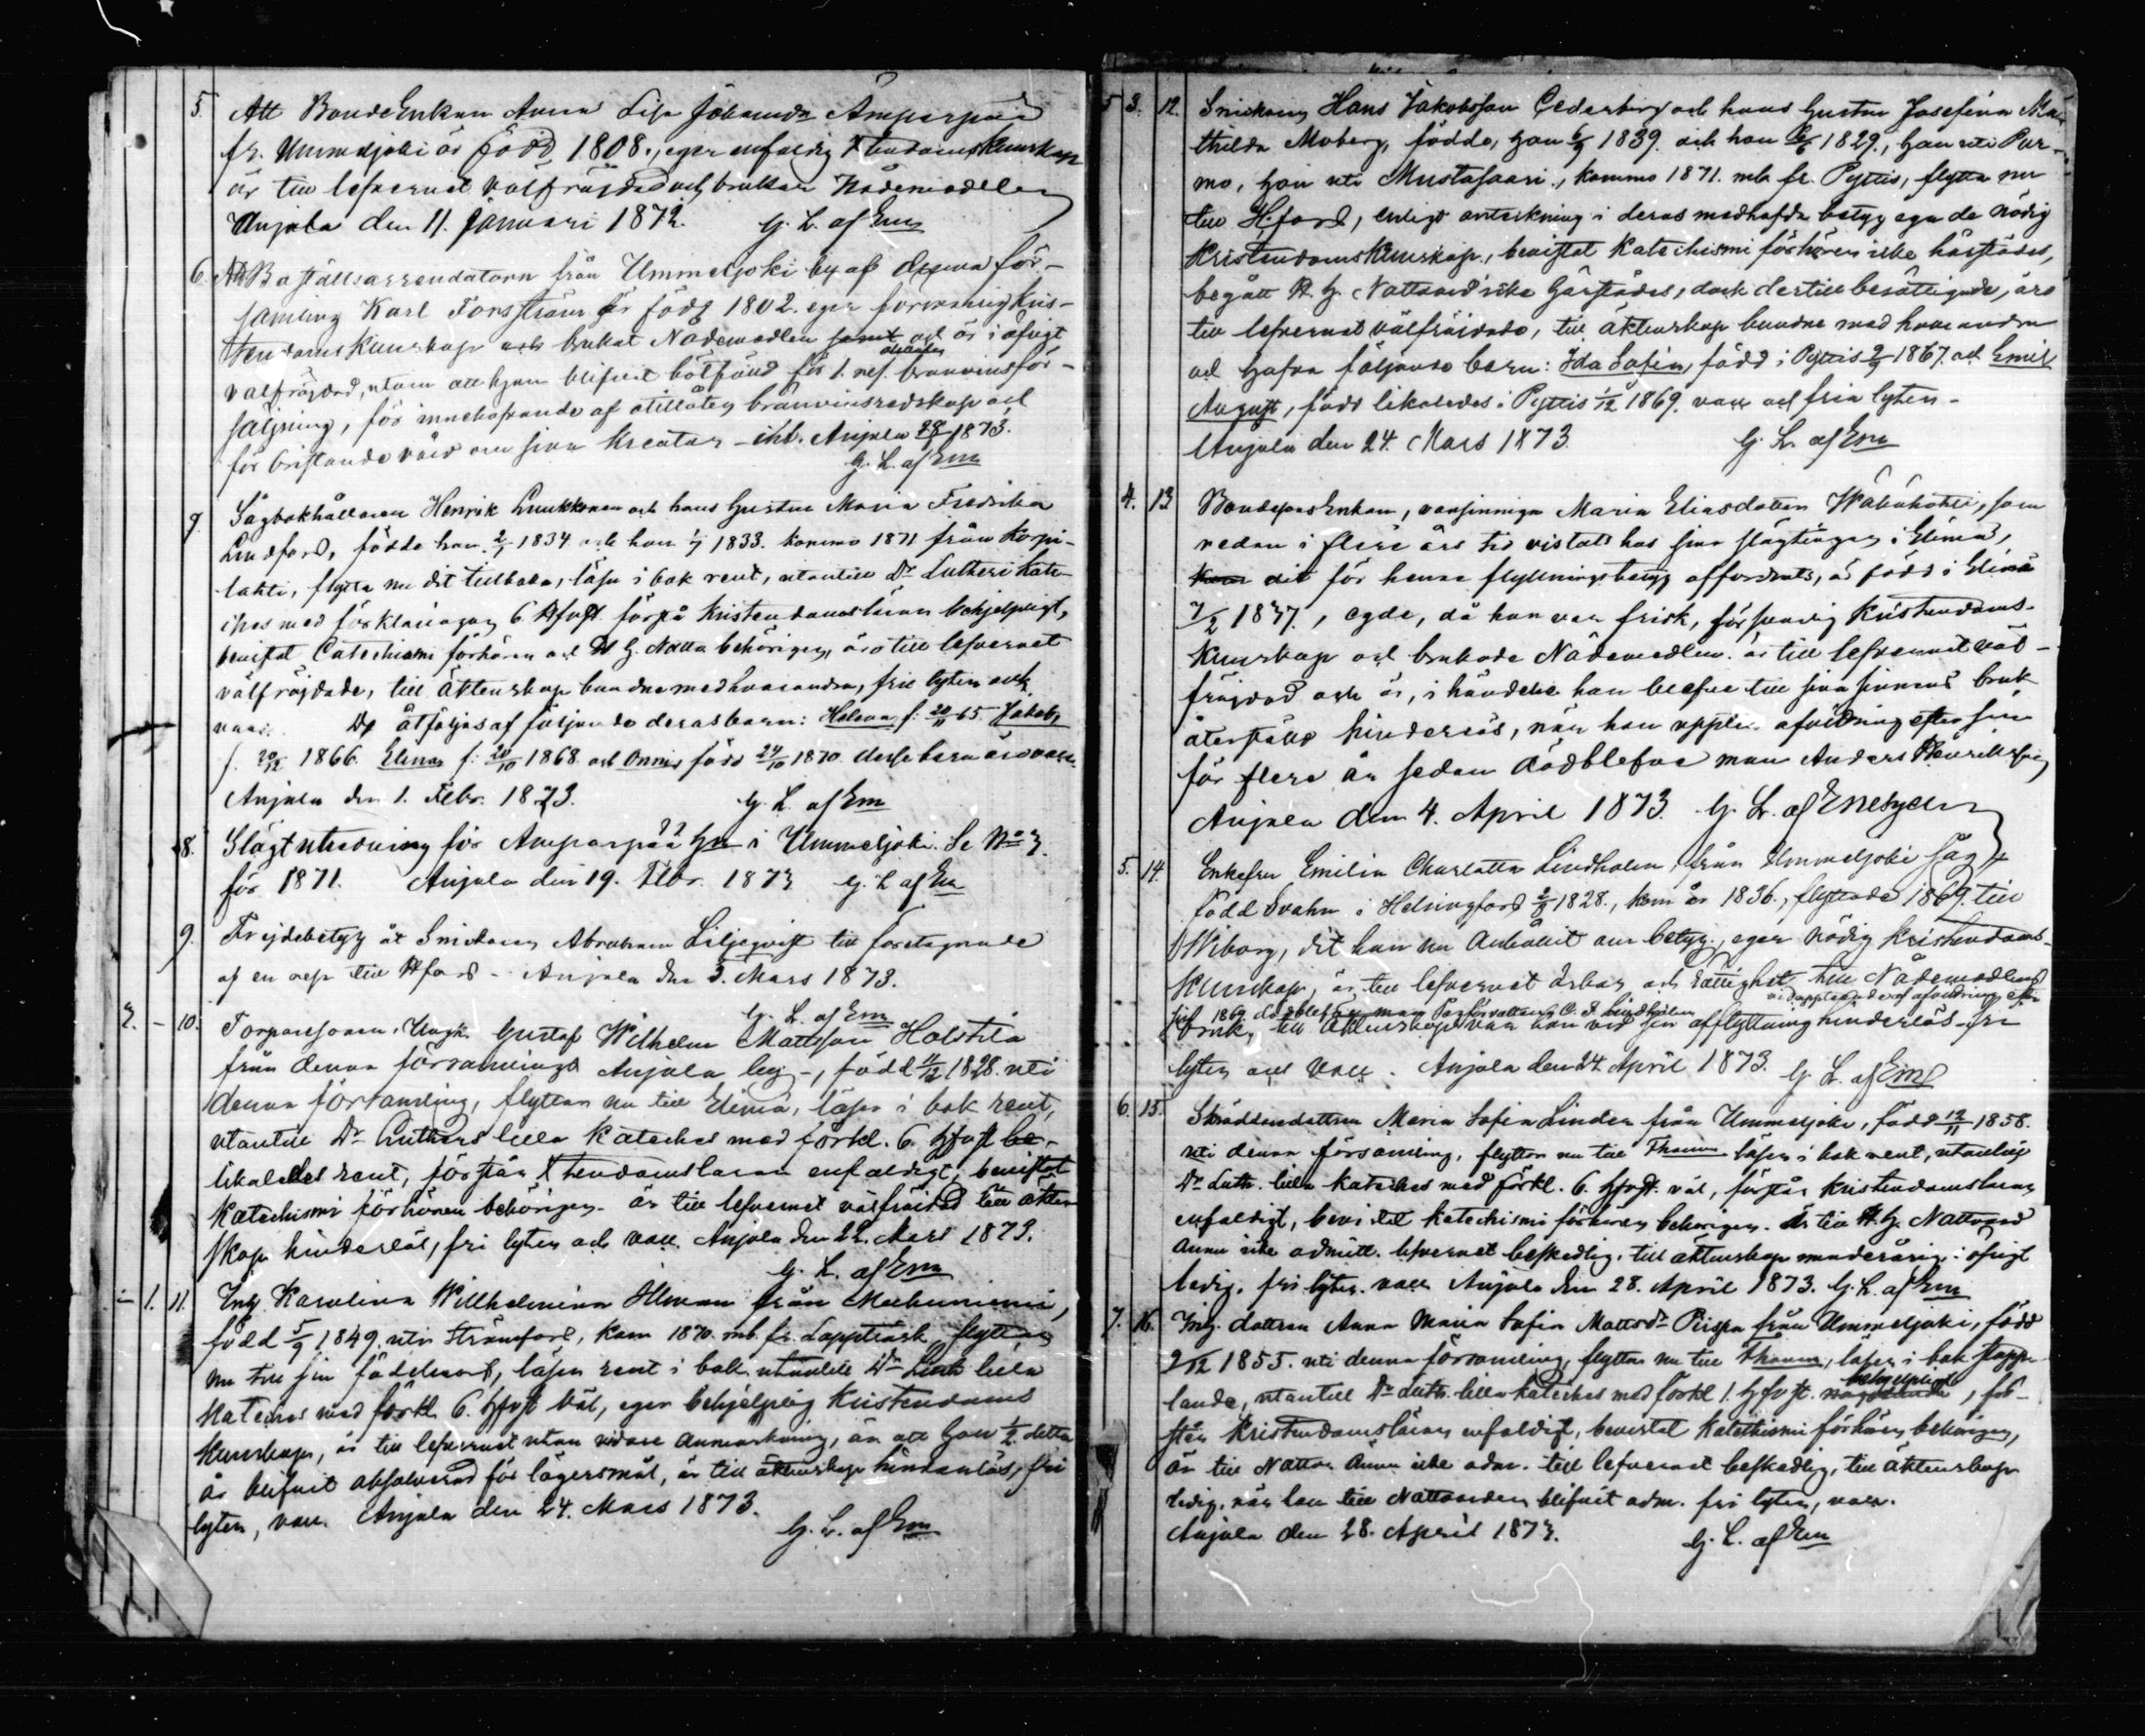 5. Att BondeEnkan Anna Lisa Johansdr Amperpää
fr. Ummeljoki är född 1808., eger enfaldig Xtendomskunskap
är till lefvernet välfräjdad och brukar Nådemedlen
Anjala den 11. Januari 1873. G. L. af Em
6. Att Boställsarrendatorn från Ummeljoki by af denna för-
samling Karl Forsström är född 1802. eger försvarlig Kris-
tendomskunskap och brukat Nådemedlen samt och är i öfrigt
välfräjdad, utom att han blifvit bötfäld för 1. res. bränvinsför-
säljning, för innehafvande af otillåten bränvinsredskap och
för bristande vård om sina kreatur. Anjala 28/1 1873.
G. L. af Em
7. Sågbokhållaren Henrik Luukkonen och hans hustru Maria Fredrika
Lindfors, födde han 2/1 1834 och hon 1/7 1833. kommo 1871 från Korpi-
lahti, flytta nu dit tillbaka, läsa i bok rent, utantill Dr Lutheri Kate-
ches med förklaringen 6 Hfvst. förstå Kristendomsläran behjelpligt,
bevistat Catechismi förhören och H. H. Nattv. behörigen, äro till lefvernet
välfräjdade, till äktenskap bundne med hvarandra, frie lyten och
vacc. De åtföljas af följande deras barn: Helena f. 20/11 65. Jakob,
f. 20/12 1866. Elenas f. 20/10 1868. och Onnis född 24/10 1870. dessa barn äro vacc.
Anjala den 1. Febr. 1873. G. L. af Em
8. Slägtutredning för Amperpää hn i Ummeljoki. Se No 3.
för 1871. Anjala den 19. Febr. 1873 G. L. af Em
9. Frejdebetyg åt Snickaren Abraham Liljeqvist till företagande
af en resa till Hfors. Anjala den 3. Mars 1873.
G. L. af Em
2. – 10. Torparesonen, Ungk. Gustaf Wilhelm Mattsson Holstila
från denna församlings Anjala by, född 4/12 1828. uti
denna församling, flyttar nu till Elimä, läser i bok rent,
utantill Dr Luthers lilla Kateches med förkl. 6. hfvst be-
likaledes rent, förstår Xtendomsläran enfaldigt, bevistat
Katechismi förhören behörigen. är till lefvernet välfräjdad till äkten
skap hinderlös, fri lyten och vacc. Anjala den 22. Mars 1873.
G. L. af Em
– 1. 11. Enk. Karolina Willhelmina Ilman från Muhuniemi,
född 5/9 1849. uti Strömfors, kom 1870. mb. fr. Lappträsk, flyttar
nu till sin födelseort, läser rent i bok utantill Dr Luth lilla
Kateches med förkl. 6. hfvst väl, eger behjelplig Kristendoms
kunskap, är till lefvernet utan vidare anmärkning, än att hon 1/2 detta
år blifvit absolverad för lägersmål, är till äktenskap hinderlös, fri
lyten, vacc. Anjala den 24. Mars 1873.
G. L. af Em
3. 12. Snickaren Hans Jakobsson Cederberg och hans hustru Josefina Ma-
thilda Moberg, födde, han 6/9 1839. och hon 1829., han uti Pur-
mo, hon uti Mustasaari, kommo 1871. mb fr. Pyttis, flytta nu
till Hfors, enligt anteckning i deras medhafda betyg ega de nödig
Kristendomskunskap, bevistat Katechismi förhören icke härstädes,
begått H. H. Nattvard icke härstädes, dock dertill berättigade, äro
till lefvernet välfräjdade, till äktenskap bundne med hvarandra
och hafva följande barn: Ida Sofia, född i Pyttis 9/ 1867. och Emil
August, född likaledes i Pyttis 1/12 1869. vacc och fria lyten.
Anjala den 24. Mars 1873 G. L. af Em
4. 13 BondepigEnkan, vansinniga Maria Eliasdotter, som
redan i flere års tid vistats hos sina slägtingar i Elimä,
kom dit för henne flyttningsbetyg affordrats, är född i Elimä
7/2 1837., egde, då hon var frisk, försvarlig Kristendoms-
kunskap och brukade Nådemedlen. är till lefvernet väl-
fräjdad och är, i händelse hon blefve till sina sinnens bruk
återstäld hinderlös, när hon upplr. afvittring efter sin
för flere år sedan dödblefne man Anders Henriksson
Anjala den 4. April 1873. G. L. af Enehjelm
5. 14. Enkefru Emilia Charlotta Lindholm, från Ummeljoki såg,
född Svahn i Helsingfors 1828., kom år 1836., flyttade 1869. till
Wiborg, dit hon nu anhållit om betyg., eger nödig Kristendoms-
kunskap, är till lefvernet ärbar och rättighet till Nådemedlens
vid uppteende af afvittring efter
sin 1869 dödblefne man Sågförvaltaren C. F. Lindholm
bruk, till äktenskap var hon vid sin afflyttning hinderlös, fri
lyten och vacc. Anjala den 24 April 1873. G. L. af Em
6. 15. Skräddaredottren Maria Sofia Linden från Ummeljoki, född 12/11 1858.
uti denna församling, flyttar nu till Thomn läser i bok rent, utantill
Dr Luth. lilla Kateches med förkl. 6. hfvst. väl, förstår Kristendomsläran
enfaldigt, bevistat Katechismi förhören behörigen. är till H. H. Nattvard
ännu icke admitt. lefvernet beskedlig, till äktenskap minderårig, i öfrigt
ledig, fri lyten. vacc Anjala den 28. April 1873. G. L. af Em
7. 16. Inh. dottren Anna Maria Sofia Mattsdr Piispa från Ummeljoki, född
9/12 1855. uti denna församling, flyttar nu till Thomn, läser i bok stapp-
behjelpligt
lande, utantill Dr Luth. lilla Kateches med förkl 1. hfvst. någorlunda, för-
står Kristendomsläran enfaldigt, bevistat Katechismi förhören behörigen,
är till Nattv. ännu icke adm. till lefvernet beskedlig, till äktenskap
ledig, när hon till Nattvarden blifvit adm. fri lyten, vacc.
Anjala den 28. April 1873. G. L. af Em